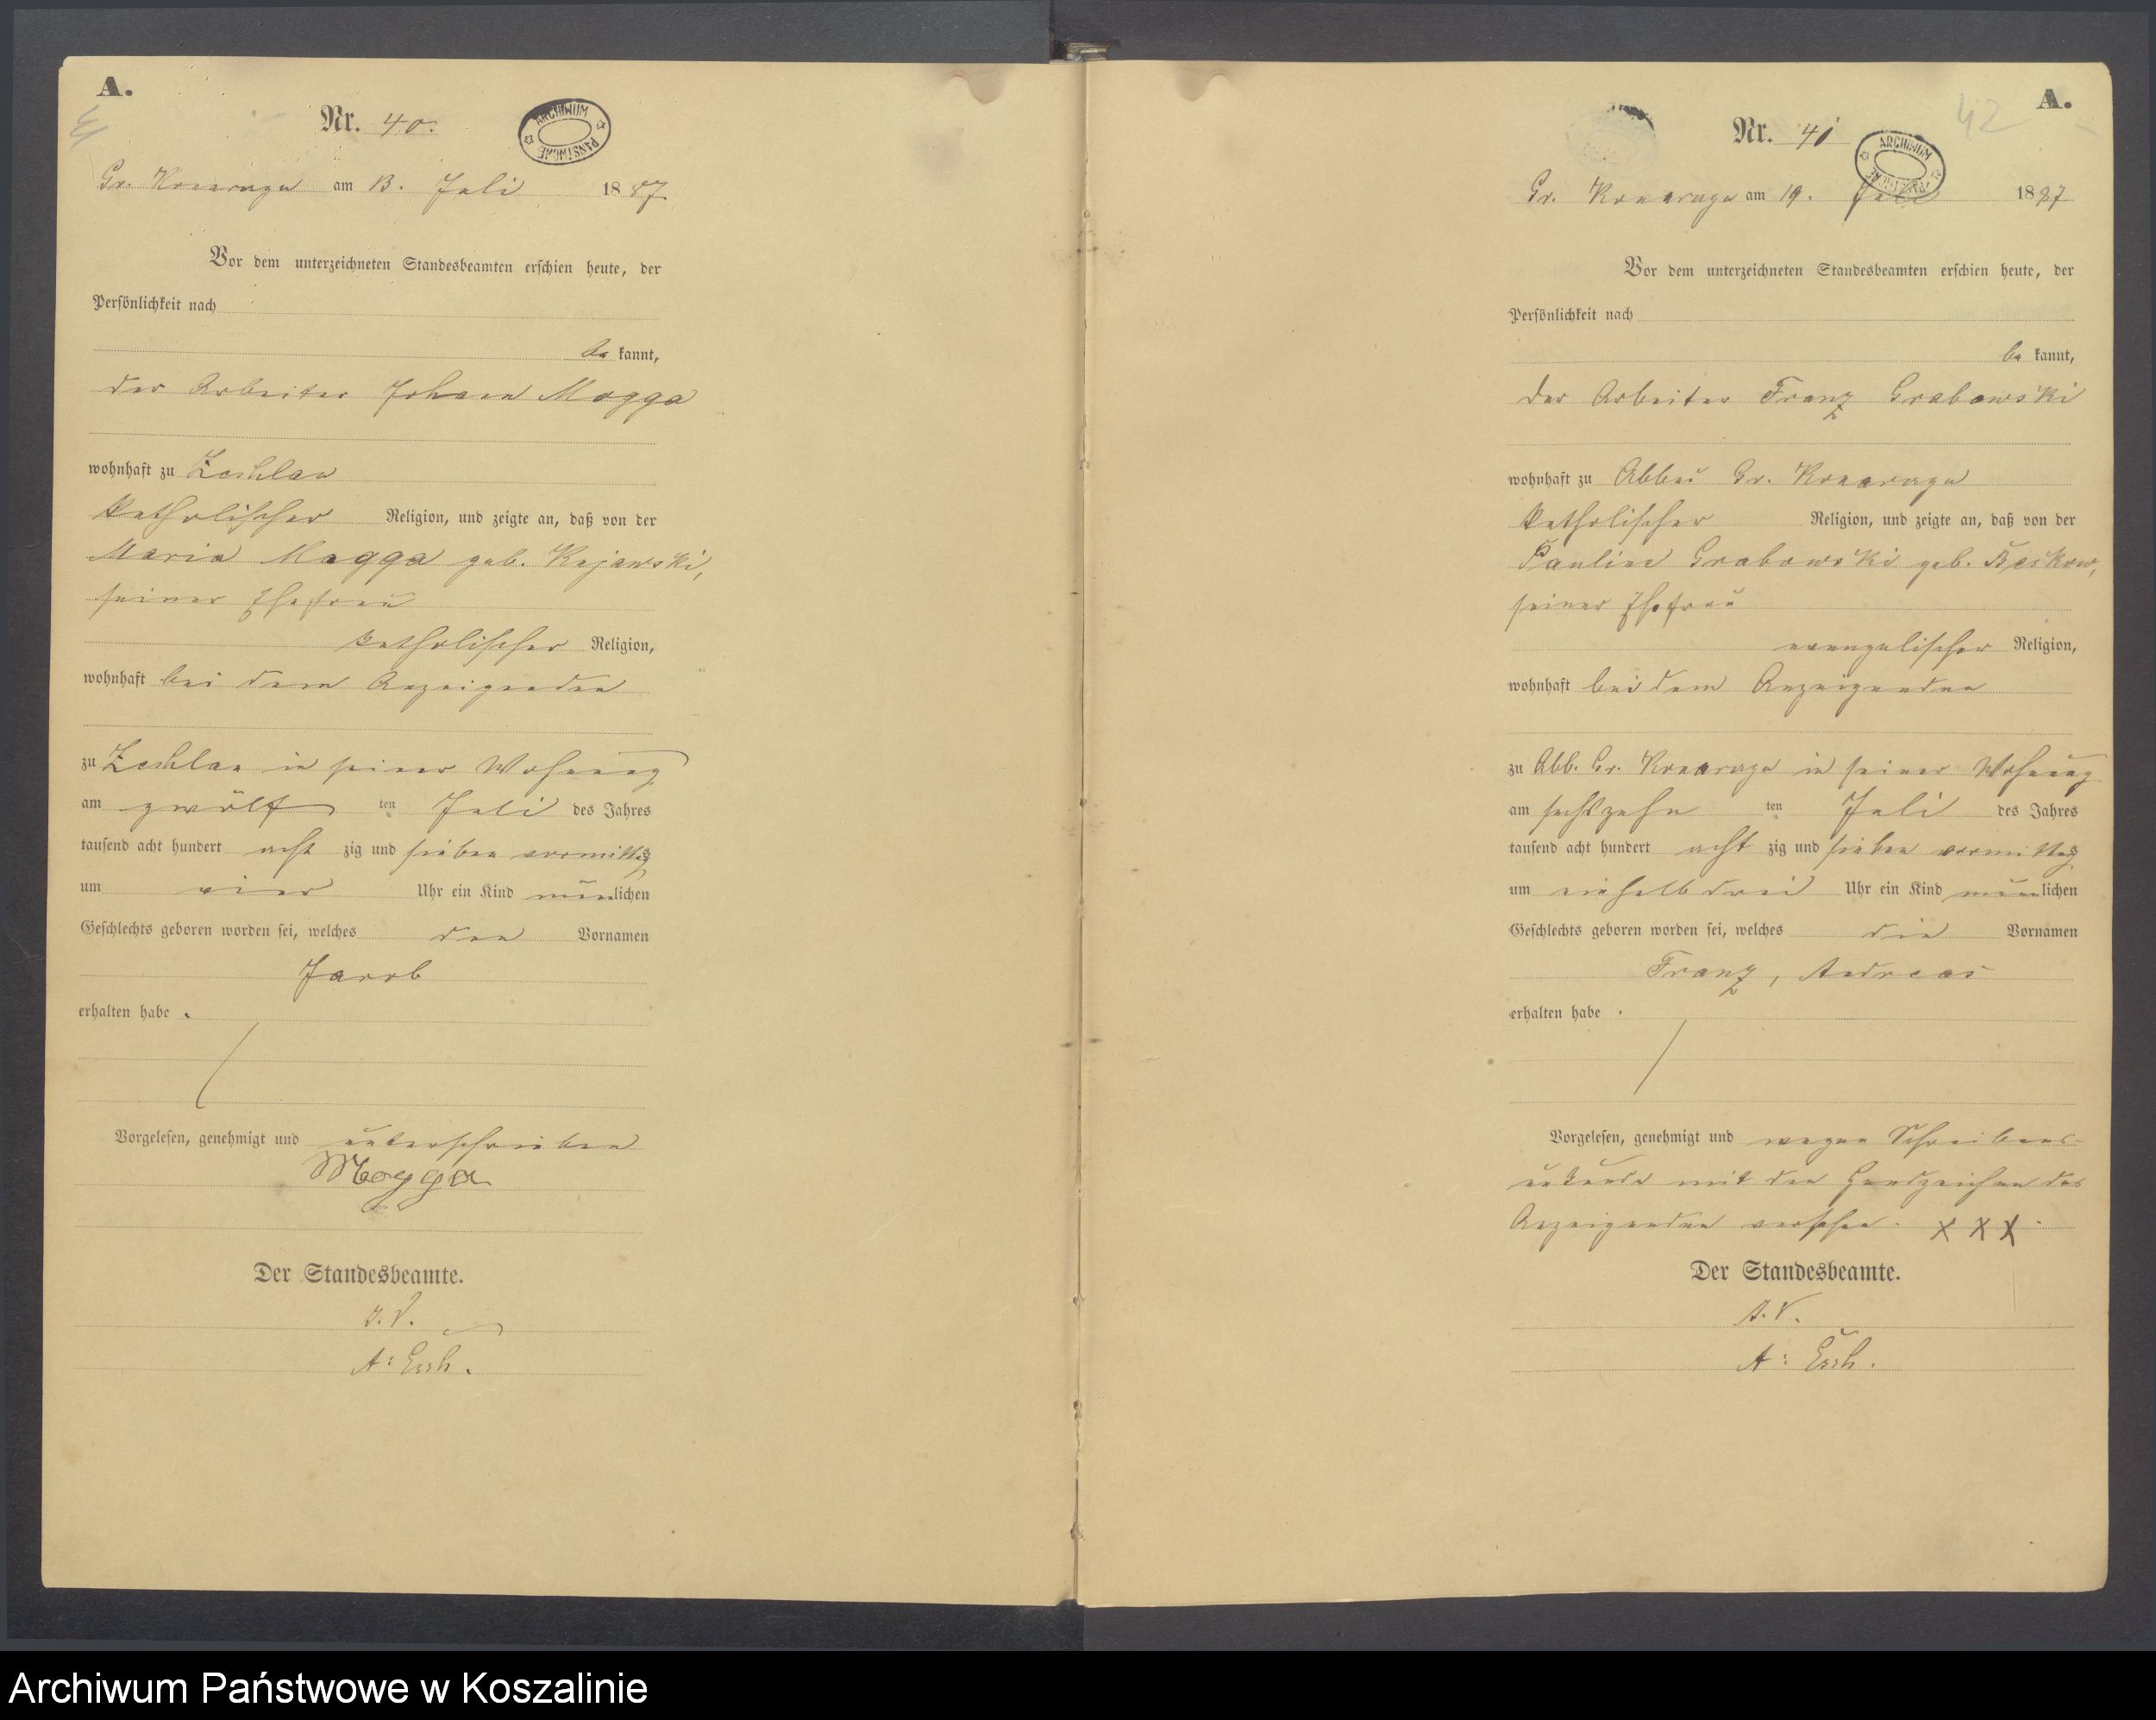 A.
Nr. 40.
Gr. Konarzyn am 13. Juli 1887
Vor dem unterzeichneten Standesbeamten erschien heute, der
Persönlichkeit nach
be kannt,
der Arbeiter Johann Mogga
wohnhaft zu Zechlau
katholischer Religion, und zeigte an, daß von der
Maria Mogga geb. Kujawski,
seiner Ehefrau
katholischer Religion,
wohnhaft bei dem Anzeigenden
zu Zechlau in seiner Wohnung
am zwölf ten Juli des Jahres
tausend acht hundert acht zig und sieben vormittags
um vier Uhr ein Kind männlichen
Geschlechts geboren worden sei, welches den Vornamen
Jacob
erhalten habe .
Vorgelesen, genehmigt und unterschrieben
Mogga
Der Standesbeamte.
J. V.
A:
A.
42
Nr. 41
Gr. Konarzyn am 19. Juli 1887
Vor dem unterzeichneten Standesbeamten erschien heute, der
Persönlichkeit nach
be kannt,
der Arbeiter Franz Grabowski
wohnhaft zu Abbau Gr. Konarzyn
katholischer Religion, und zeigte an, daß von der
Pauline Grabowski geb.
seiner Ehefrau
evangelischer Religion,
wohnhaft bei dem Anzeigenden
zu Abb. Gr. Konarzyn in seiner Wohnung
am sechszehn ten Juli des Jahres
tausend acht hundert acht zig und sieben vormittags
um einhalb drei Uhr ein Kind männlichen
Geschlechts geboren worden sei, welches die Vornamen
Franz, Andreas
erhalten habe .
Vorgelesen, genehmigt und wegen Schreibens-
unkunde mit den Handzeichen des
Anzeigenden versehen. X X X.
Der Standesbeamte.
J. V.
A:
ARCHIWUM PAŃSTWOWE
ARCHIWUM PAŃSTWOWE
Archiwum Państwowe w Koszalinie